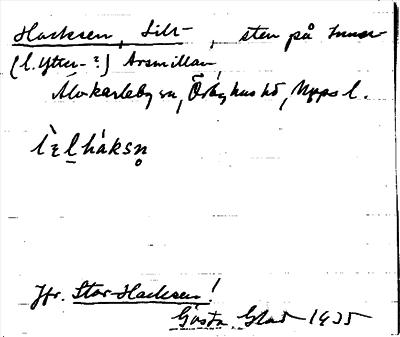 Hacksen, Lill-, sten på Inner
(l. Ytter-?) Arsmillan
Älvkarleby sn, Örbyhus hd, Upps l.
Jfr. Stor-Hacksen!
Gösta Glad 1935